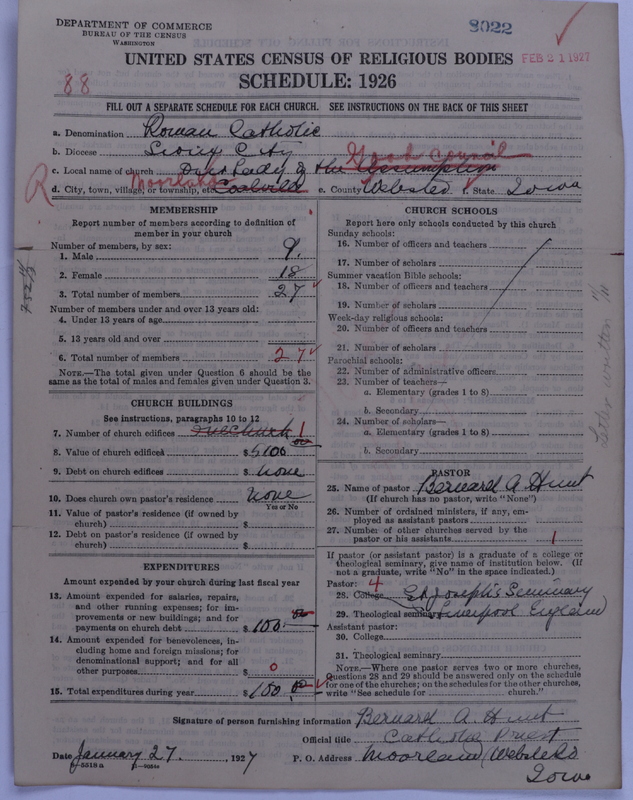 DEPARTMENT OF COMMERCE
BUREAU OF THE CENSUS
WASHINGTON
8022
FEB 21 1927
UNITED STATES CENSUS OF RELIGIOUS BODIES
SCHEDULE: 1926
88
FILL OUT A SEPARATE SCHEDULE FOR EACH CHURCH. SEE INSTRUCTIONS ON THE BACK OF THIS SHEET
a. Denomination Roman Catholic
b. Diocese Sioux City
Good Council
c. Local name of church Our Lady of the Assumption
Moorland
d. City, town, village, or township, etc. e. County Webster f. State Iowa
R
MEMBERSHIP
Report number of members according to definition of
member in your church
Number of members, by sex:
1. Male 9.
2. Female 18
3. Total number of members 27
Number of members under and over 13 years old:
4. Under 13 years of age
5. 13 years old and over
6. Total number of members 27
NOTE.—The total given under Question 6 should be
same as the total of males and females given under Question 3.
CHURCH BUILDINGS
See instructions, paragraphs 10 to 12
7. Number of church edifices one church 1
8. Value of church edifices $5100 00
9. Debt on church edifices $ none
10. Does church own pastor's residence none
Yes or No
11. Value of pastor's residence (if owned by
church) $
12. Debt on pastor's residence (if owned by
church) $
EXPENDITURES
Amount expended by your church during last fiscal year
13. Amount expended for salaries, repairs,
and other running expenses; for im-
provements or new buildings; and for
payments on church debt $ 100.
14. Amount expended for benevolences, in-
cluding home and foreign missions; for
denominational support; and for all
other purposes $ 0
15. Total expenditures during year $ 100.00
CHURCH SCHOOLS
Report here only schools conducted by this church
Sunday schools:
16. Number of officers and teachers
17. Number of scholars
Summer vacation Bible schools:
18. Number of officers and teachers
19. Number of scholars
Week-day religious schools:
20. Number of officers and teachers
21. Number of scholars
Parochial schools:
22. Number of administrative officers
23. Number of teachers—
a. Elementary (grades 1 to 8)
b. Secondary
24. Number of scholars—
a. Elementary (grades 1 to 8)
b. Secondary
Letter written 11/11
PASTOR
25. Name of pastor Bernard A. Hunt
(If church has no pastor, write "None")
26. Number of ordained ministers, if any, em-
ployed as assistant pastors
27. Number of other churches served by the
pastor or his assistants 1
If pastor (or assistant pastor) is a graduate of a college or
theological seminary, give name of institution below. (If
not a graduate, write "No" in the space indicated.)
Pastor: 4
28. College St Joseph's Seminary
29. Theological seminary Liverpool England
Assistant pastor:
30. College
31. Theological seminary
NOTE.—Where one pastor serves two or more churches,
Questions 28 and 29 should be answered only on the schedule
for one of the churches; on the schedules for the other churches,
write "See schedule for church."
Signature of person furnishing information Bernard A. Hunt
Official title Catholic Priest
Date January 27. , 1927 P. O. Address Moorland (Webster Co
Iowa